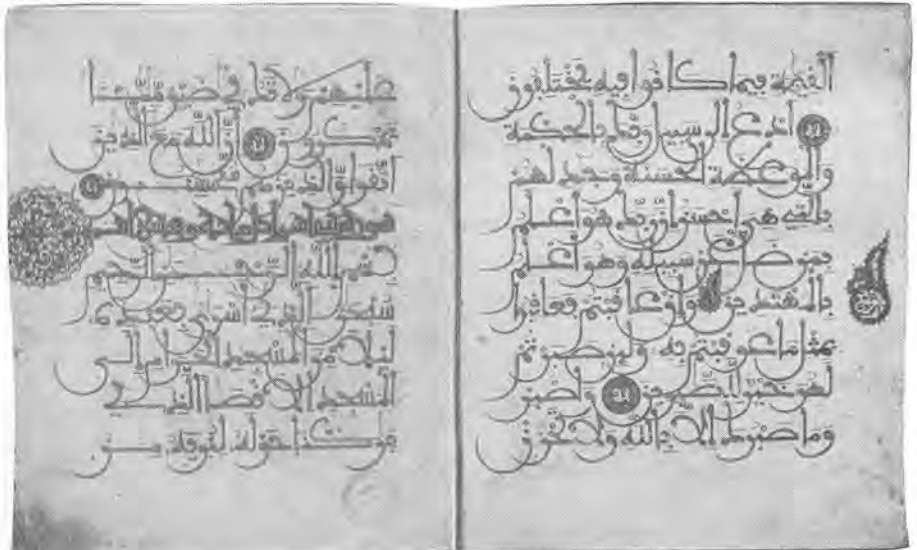 القيمة فيما كانوا فيه يختلفون
ادع الى سبيل ربك بالحكمة
والموعظة الحسنة وجدلهم
بالتي هي احسن ان ربك هو اعلم
بمن ضل عن سبيله وهو اعلم
بالمهتدين وان عاقبتم فعاقبوا
بمثل ما عوقبتم به ولئن صبرتم
لهو خير للصبرين واصبر
وما صبرك الا بالله ولا تحزن
عليهم ولا تك في ضيق مما
يمكرون ان الله مع الذين
اتقوا والذين هم محسنون
سورة بني اسرائيل
بسم الله الرحمن الرحيم
سبحن الذي اسرى بعبده
ليلا من المسجد الحرام الى
المسجد الاقصا الذي
بركنا حوله لنريه من